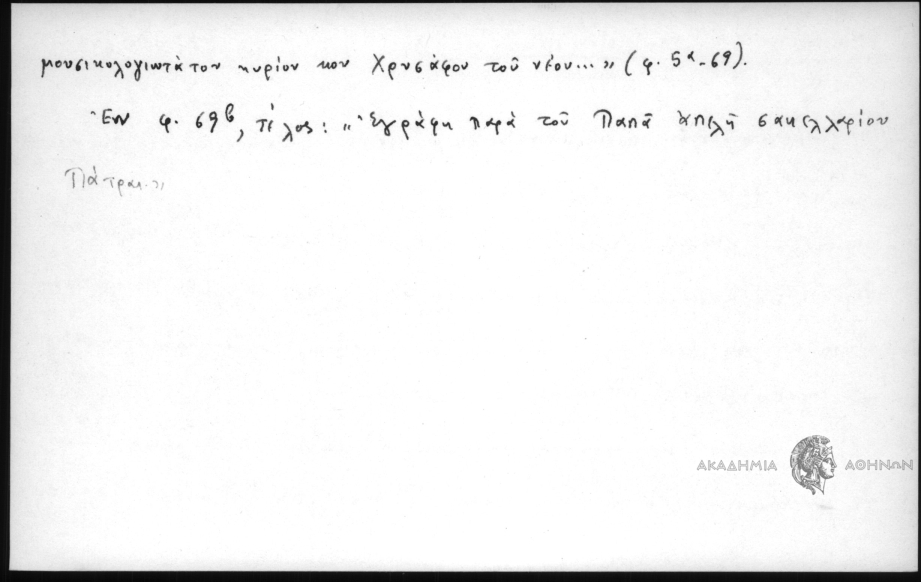 μουσικολογιωτάτου κυρίου κου Χρυσάφου τοῦ νέου...» (φ. 5α-69).
Ἐν φ. 69β, τέλος: «Ἐγράφη παρὰ τοῦ Παπᾶ σακελλαρίου
Πάτραι.»
ΑΚΑΔΗΜΙΑ ΑΘΗΝΩΝ